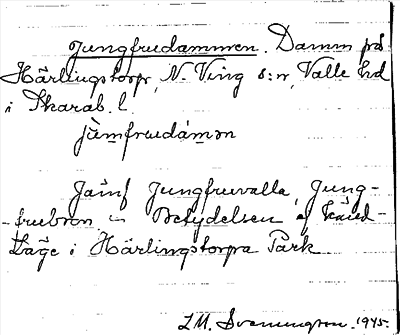 Jungfrudammen. Damm på
Härlingstorp, N. Ving s:n, Valle hd
i Skarab. l.
jùmfrudámən
Jämf Jungfruvalla, Jung-
-frubron Betydelsen af
i Härlingstorps Park
I.M. Svenungsson. 1945.